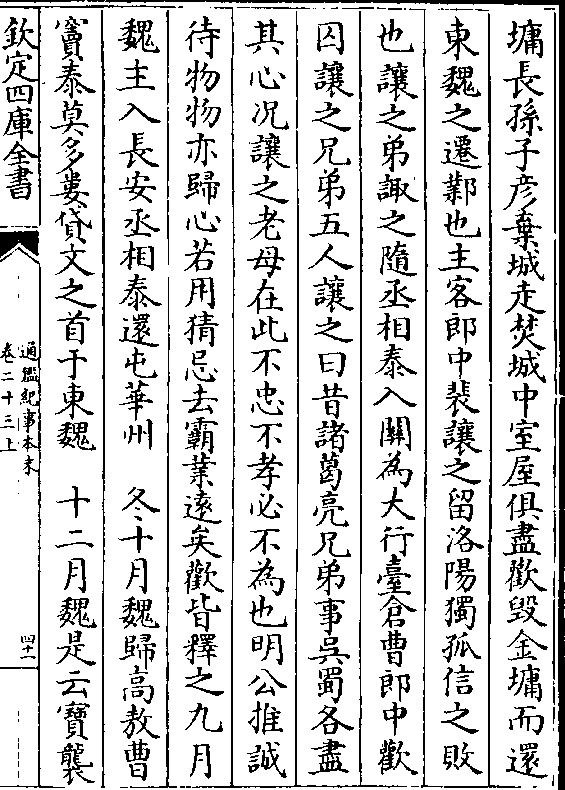 墉長孫子彦棄城走焚城中室屋俱盡歡毁金墉而還
東魏之遷鄴也主客郎中裴讓之留洛陽獨孤信之敗
也讓之弟諏之隨丞相泰入關為大行臺倉曹郎中歡
囚讓之兄弟五人讓之曰昔諸葛亮兄弟事吳蜀各盡
其心况讓之老母在此不忠不孝必不為也明公推誠
待物物亦歸心若用猜忌去霸業逺矣歡皆釋之九月
魏主入長安丞相泰還屯華州　冬十月魏歸高敖曹
竇泰莫多婁貸文之首于東魏　十二月魏是云寶襲
欽定四庫全書
通鑑紀事本末
卷二十三上
四十一